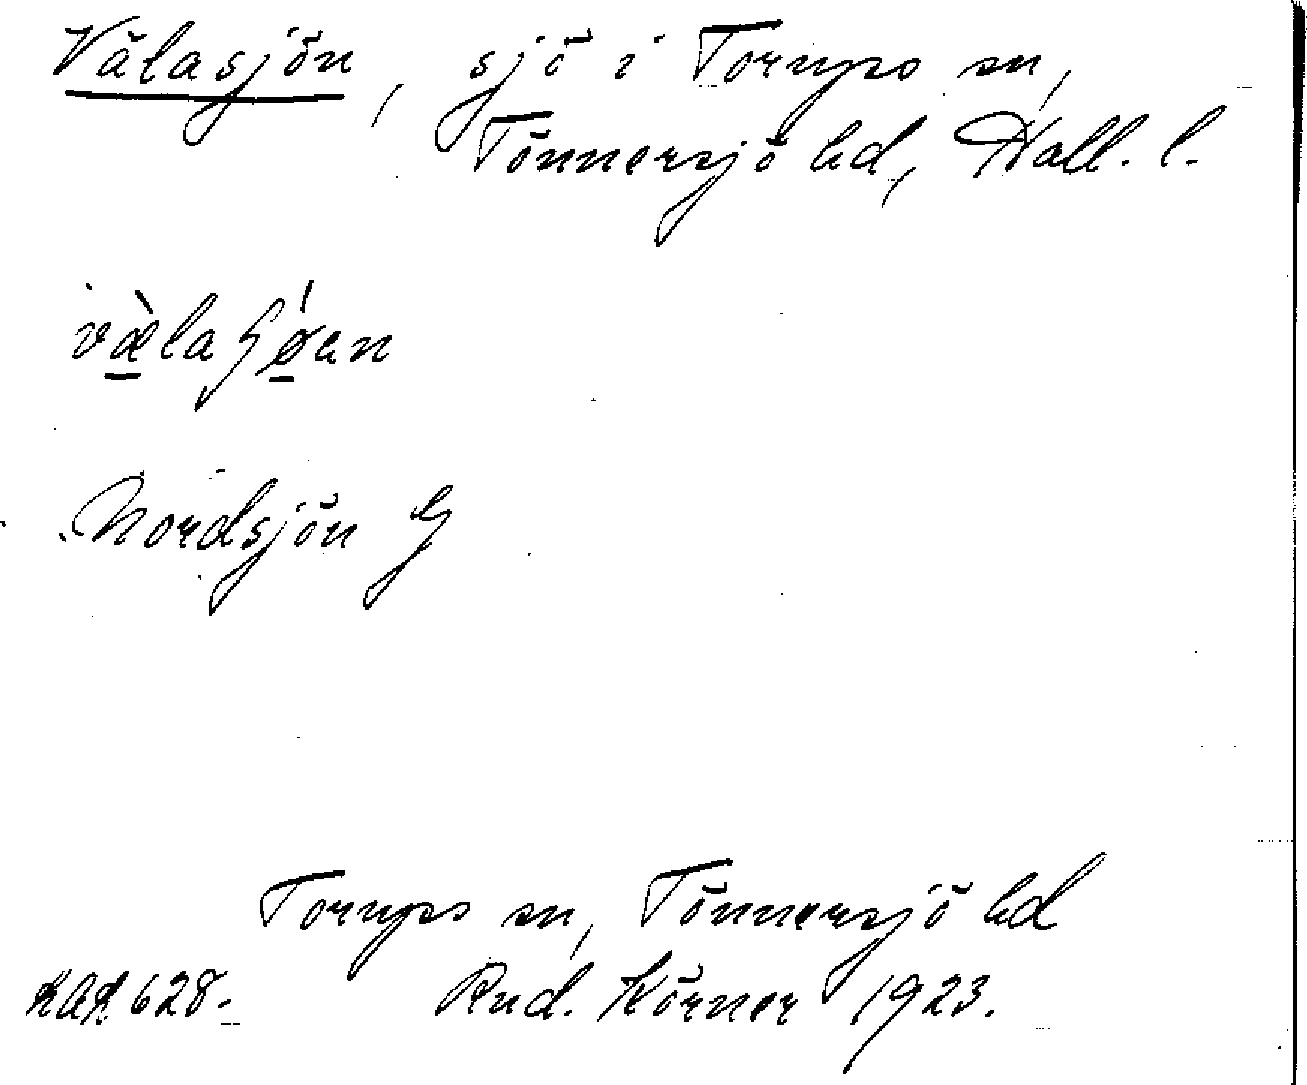 Välasjön, sjö i Torups sn,
Tönnersjö hd, Hall. l.
Nordsjön G
Torups sn, Tönnersjö hd
Rud. Körner 1923.